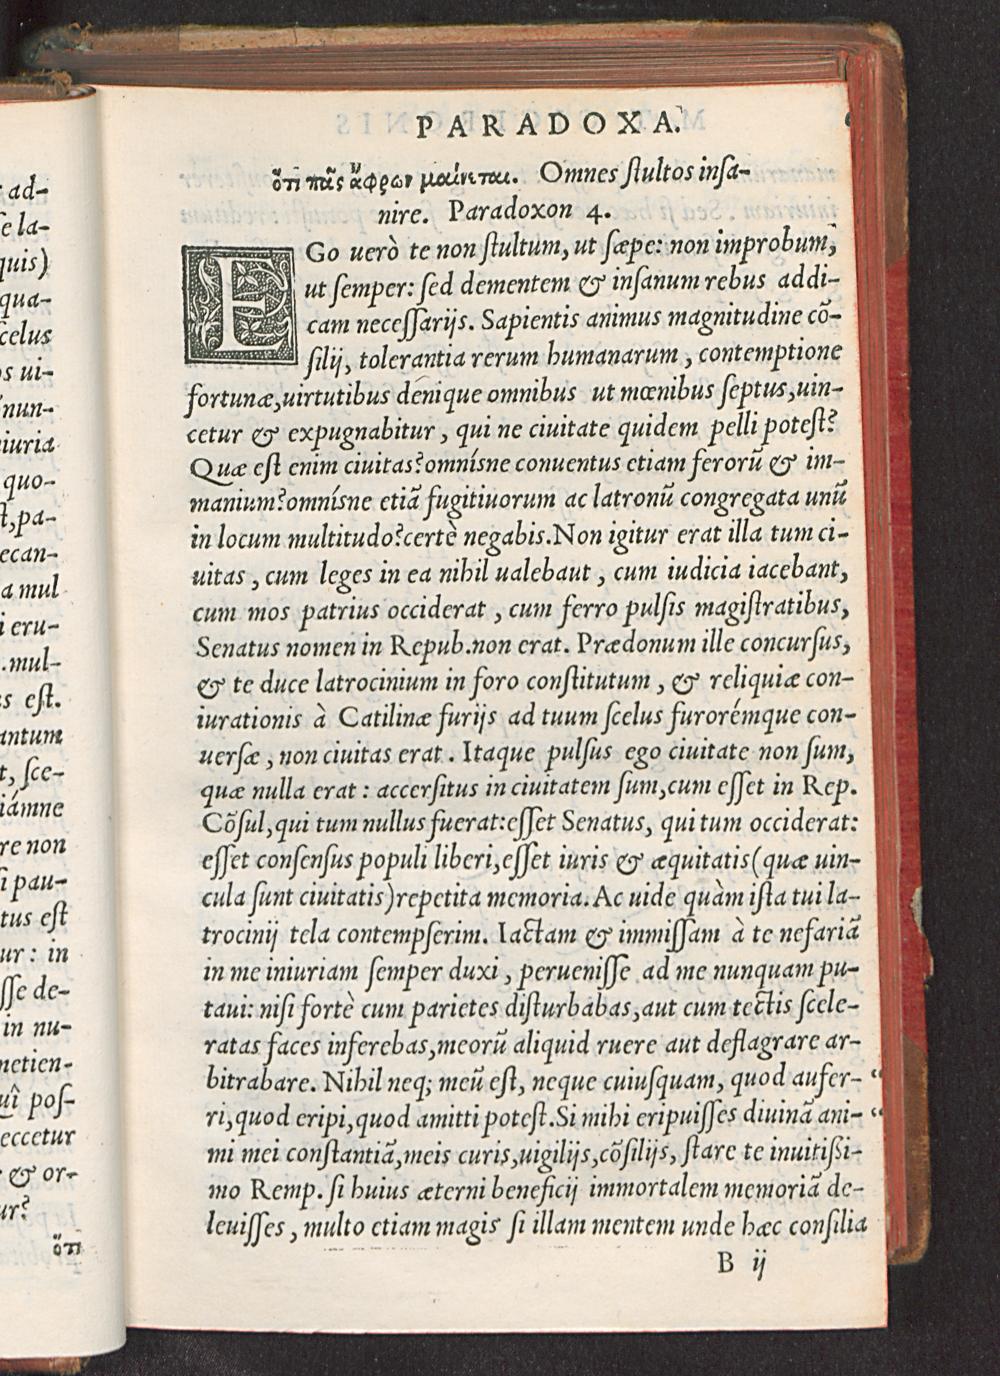 ad-
se la-
quis)
qua-
scelus
os ui-
nun-
iuria
quo-
st,pa-
ecan-
a mul
i eru-
.mul-
s est.
antum
t, sce-
iámne
re non
si pau-
tus est
ur: in
sse de-
in nu-
metien-
quî pos-
eccetur
& or-
ur?
ὅτι
PARADOXA.
ὅτι πᾶς ἄφρων μαίνεται. Omnes stultos insa-
nire. Paradoxon 4.
EGo uerò te non stultum, ut sæpe: non improbum,
ut semper: sed dementem & insanum rebus addi-
cam necessarijs. Sapientis animus magnitudine cō-
silij, tolerantia rerum humanarum, contemptione
fortunæ,uirtutibus denique omnibus ut mœnibus septus,uin-
cetur & expugnabitur, qui ne ciuitate quidem pelli potest?
Quæ est enim ciuitas?omnísne conuentus etiam ferorū & im-
manium?omnísne etiā fugitiuorum ac latronū congregata unū
in locum multitudo?certè negabis.Non igitur erat illa tum ci-
uitas, cum leges in ea nihil ualebaut, cum iudicia iacebant,
cum mos patrius occiderat, cum ferro pulsis magistratibus,
Senatus nomen in Repub.non erat. Prædonum ille concursus,
& te duce latrocinium in foro constitutum, & reliquiæ con-
iurationis à Catilinæ furijs ad tuum scelus furorémque con-
uersæ, non ciuitas erat. Itaque pulsus ego ciuitate non sum,
quæ nulla erat: accersitus in ciuitatem sum,cum esset in Rep.
Cōsul,qui tum nullus fuerat:esset Senatus, qui tum occiderat:
esset consensus populi liberi,esset iuris & æquitatis(quæ uin-
cula sunt ciuitatis)repetita memoria. Ac uide quàm ista tui la-
trocinij tela contempserim. Iactam & immissam à te nefariā
in me iniuriam semper duxi, peruenisse ad me nunquam pu-
taui: nisi fortè cum parietes disturbabas,aut cum tectis scele-
ratas faces inferebas,meorū aliquid ruere aut deflagrare ar-
bitrabare. Nihil neq; meū est, neque cuiusquam, quod aufer- “
ri,quod eripi,quod amitti potest.Si mihi eripuisses diuinā ani- “
mi mei constantiā,meis curis,uigilijs,cōsilijs, stare te inuitißi-
mo Remp. si huius æterni beneficij immortalem memoriā de-
leuisses, multo etiam magis si illam mentem unde hæc consilia
B ij